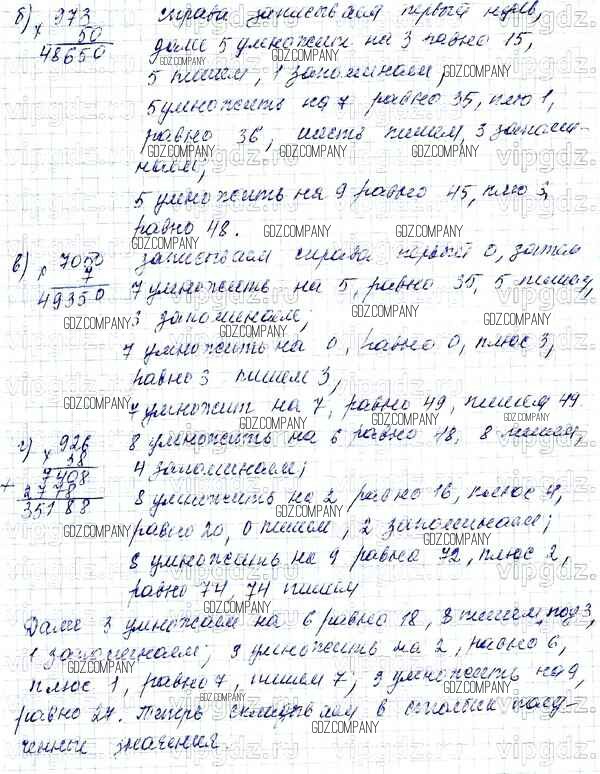 б) х 973 справа записываем первый нуль,
50 далее 5 умножить на 3 равно 15,
48650 5 пишем, 1 запоминаем;
5 умножить на 7 равно 35, плю 1,
равно 36, шесть пишем, 3 запоми-
наем;
5 умножить на 9 равно 45, плю 3,
равно 48.
в) х 7050 записываем справа первый 0, затем
7 7 умножить на 5, равно 35, 5 пишем,
49350 3 запоминаем;
7 умножить на 0, равно 0, плюс 3,
равно 3 пишем 3,
7 умножит на 7, равно 49, пишем 49.
г) х 926 8 умножить на 6 равно 18, 8 пишем,
38 4 запоминаем;
7408 8 умножить на 2 равно 16, плюс 4,
+ 2778 равно 20, 0 пишем, 2 запоминаем;
35188 8 умножить на 9 равно 72, плюс 2,
равно 74, 74 пишем
Далее 3 умножаем на 6 равно 18, 8 пишем под
1 запоминаем; 3 умножить на 2, равно 6,
плюс 1, равно 7, пишем 7; 3 умножить на 9,
равно 27. Теперь складываем в столбик полу-
ченные значения.
GDZ.COMPANY
vipgdz.ru